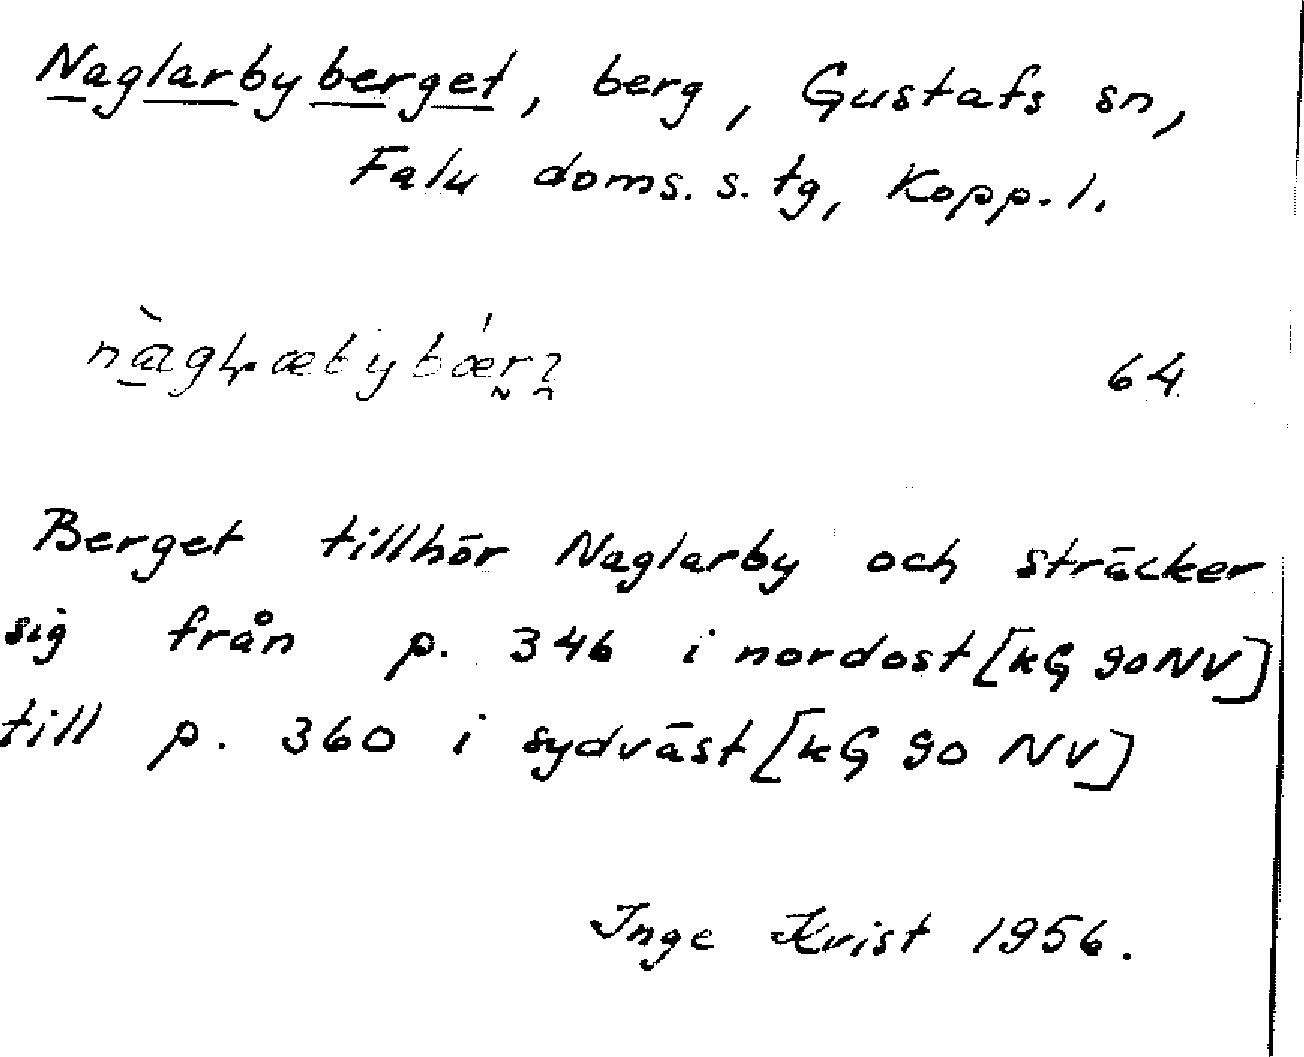 Naglarbyberget, berg, Gustafs sn,
Falu doms. s. tg, Kopp. l.
64
Berget tillhör Naglarby och sträcker
sig från p. 346 i nordost [kG 90NV]
till p. 360 i sydväst [kG 90 NV]
Inge Krist 1956.